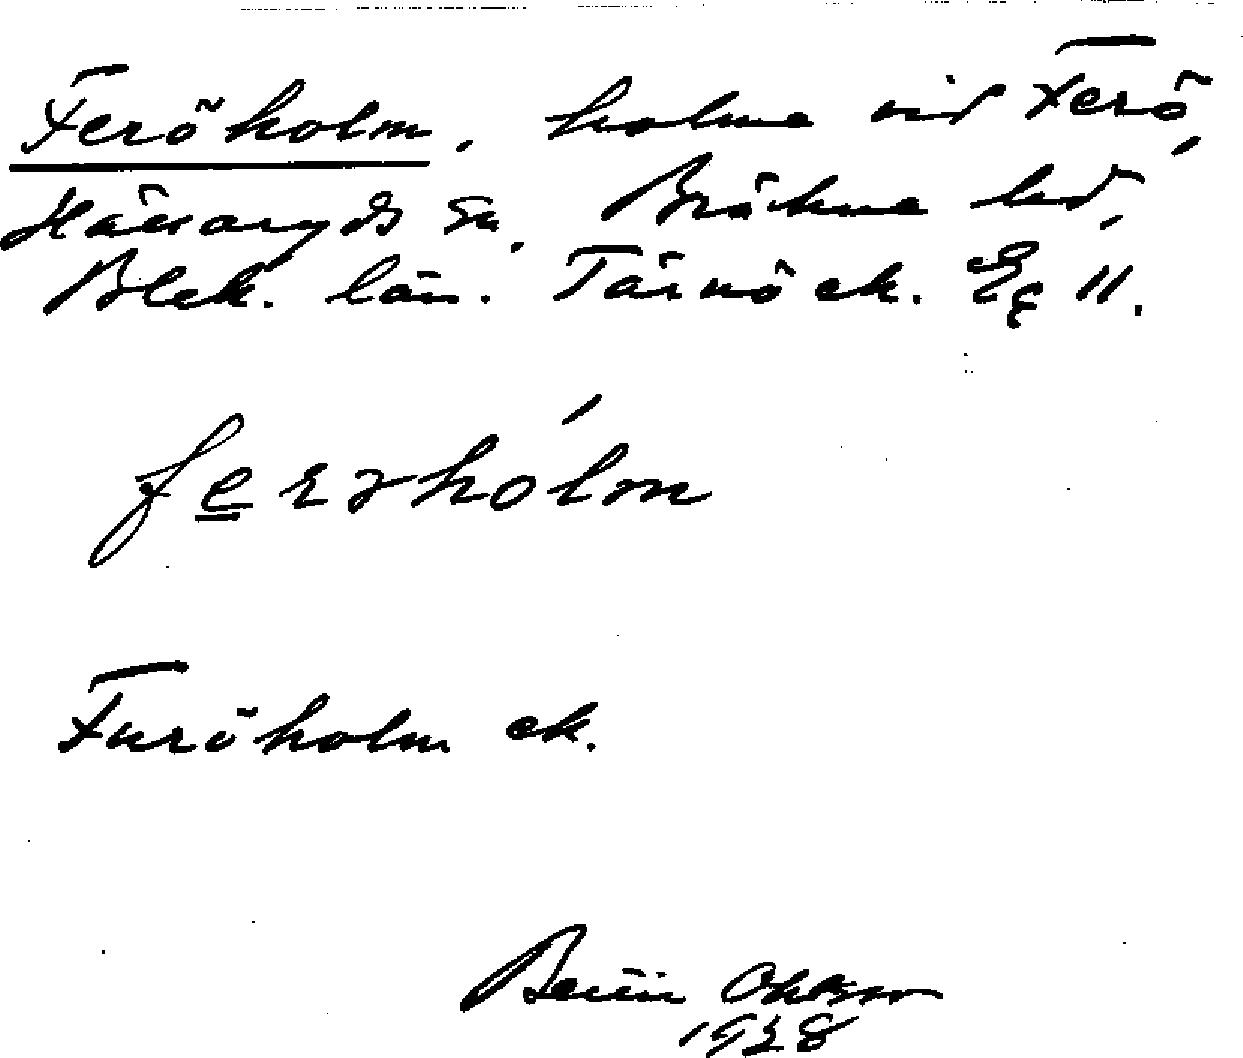 Feröholm, holme vid Ferö,
Hällaryds sn, Bräkne hd,
Blek. län. Tärnö ek. Eg 11.
ferɤhólm
Furöholm ek.
Bertil Ohlsson
1928